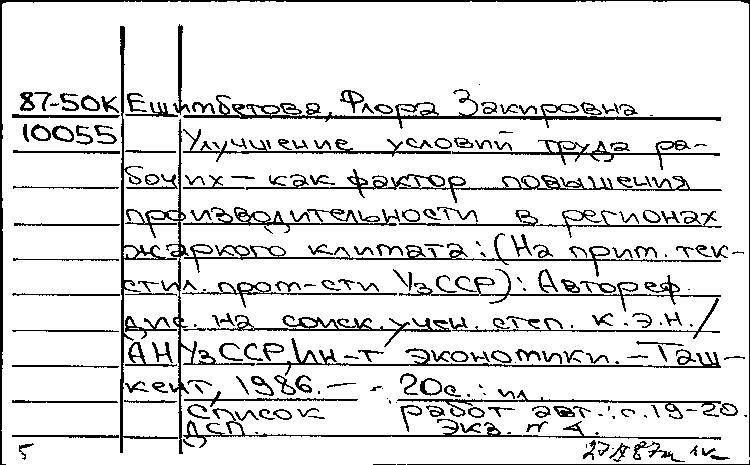 87-50К Ешимбетова, Флора Закировна
10055 Улучшение условий труда ра-
бочих – как фактор повышения
производительности в регионах
жаркого климата: (На прим. тек-
стил. пром-сти УзССР): Автореф.
дис. на соиск. учен. степ. к.э.н./
АН УзССР, Ин-т экономики. – Таш-
кент, 1986. – 20с.: ил.
Список работ авт.: с. 19-20.
ДСП. Экз. № 4.
5